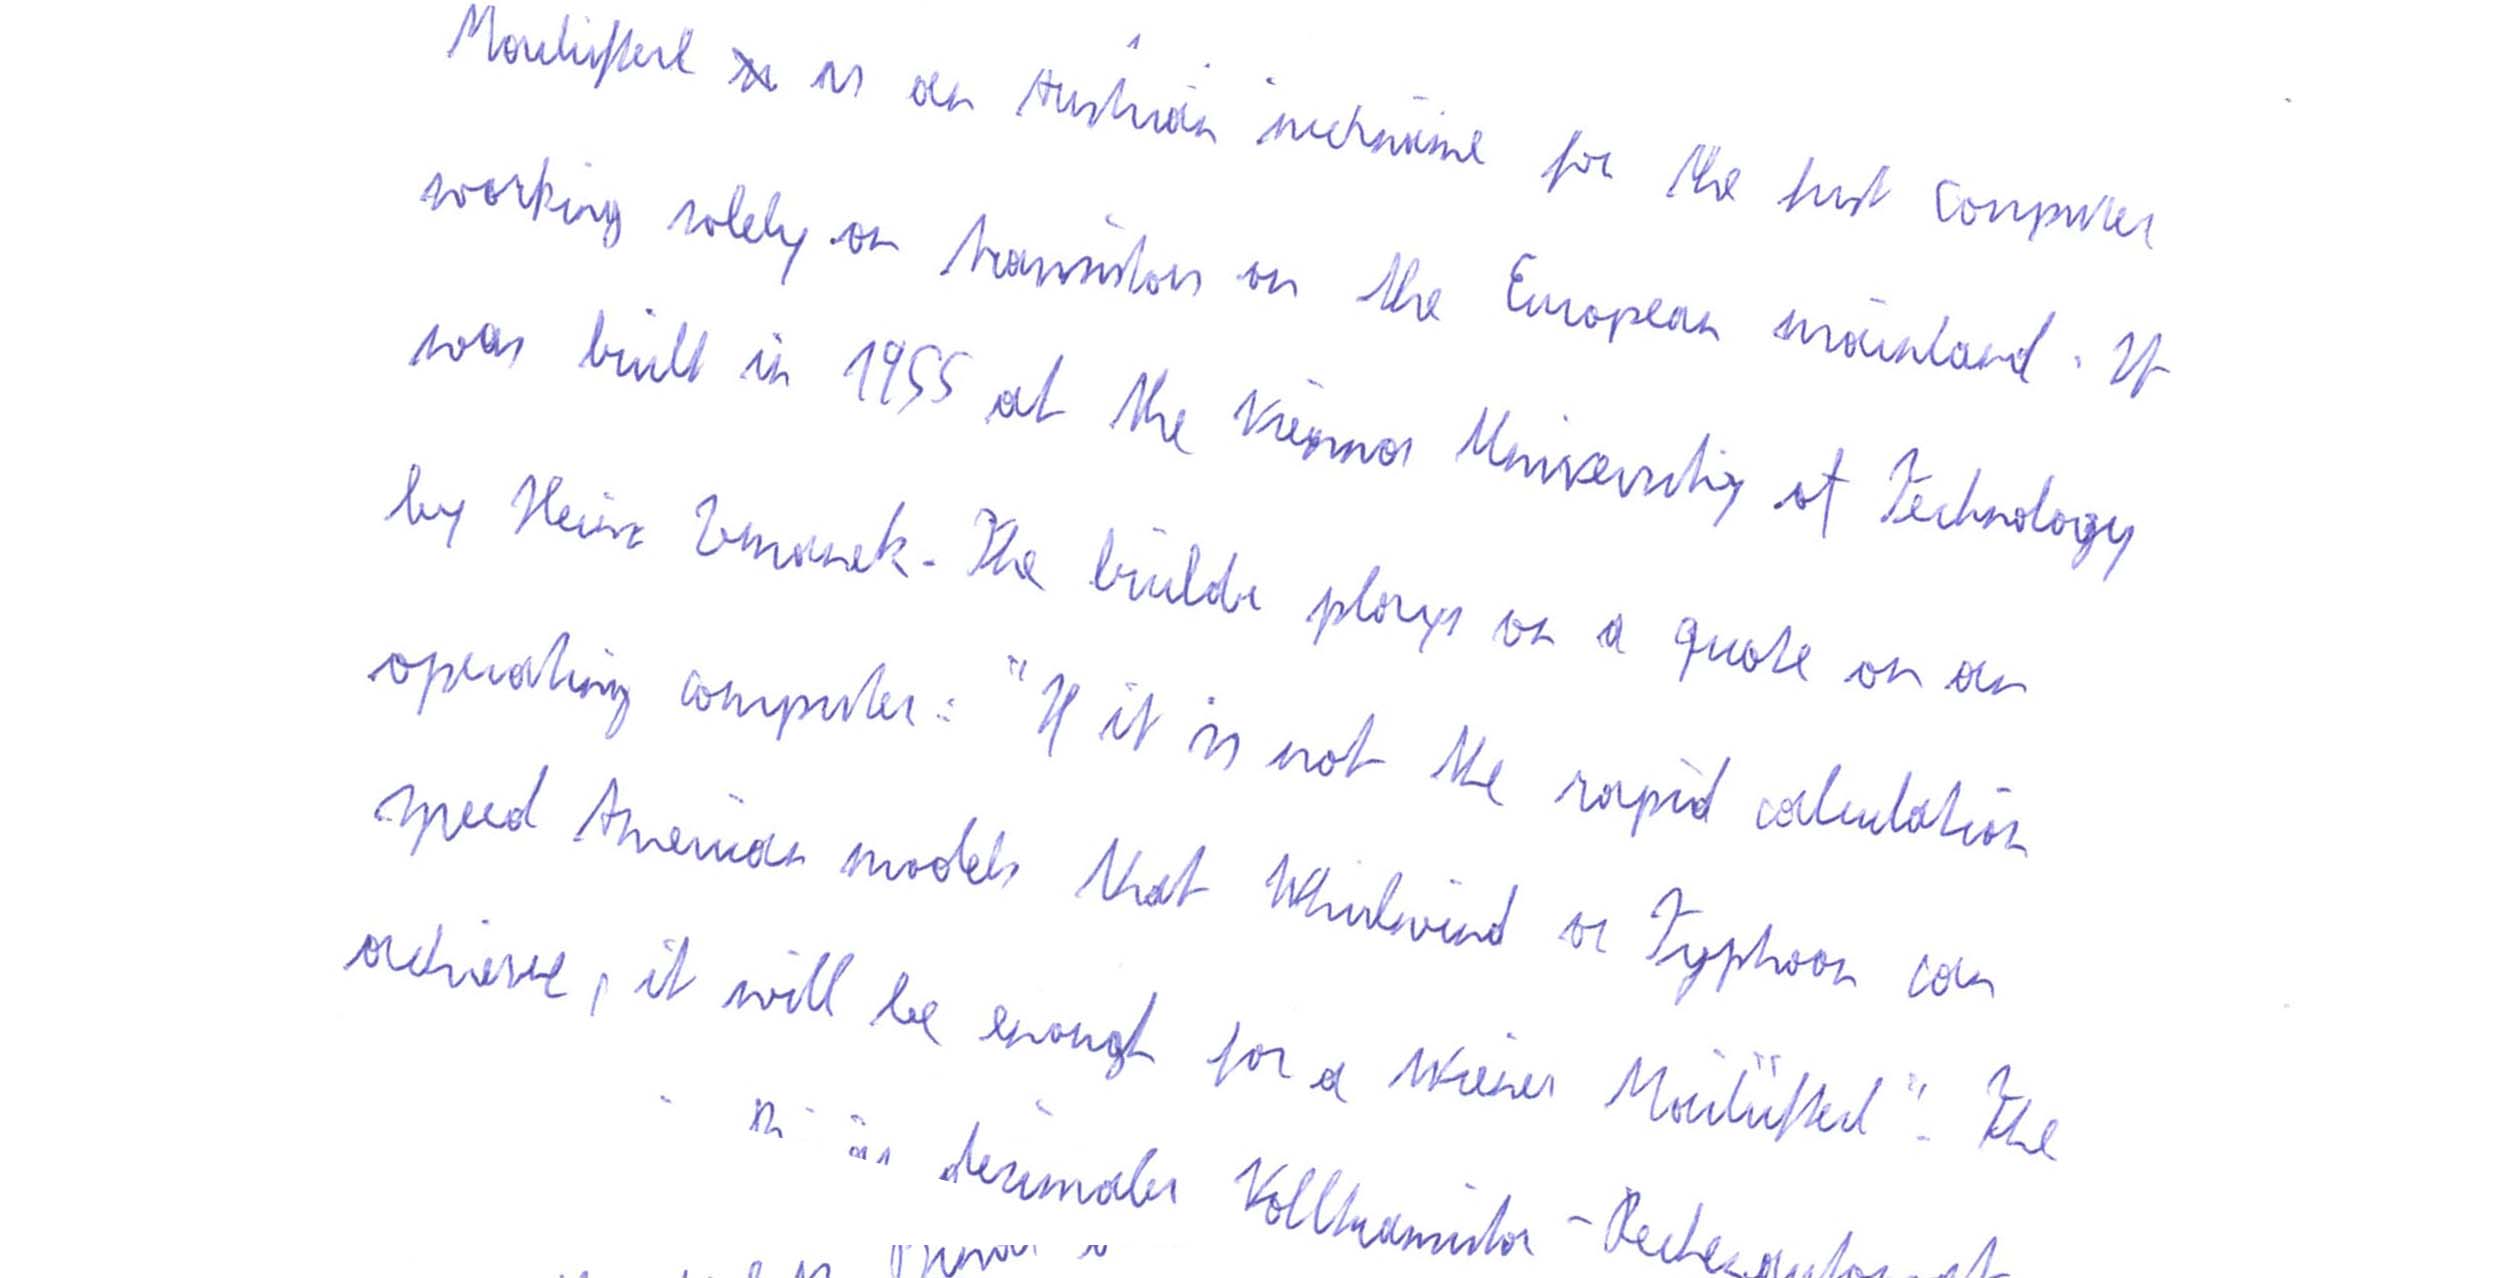 Mailüfterl is an Austrian nickname for the first computer
working solely on transistors on the European mainland. It
was built in 1955 at the Vienna University of Technology
by Heinz Zemanek. The builder plays on a quote on an
operating computer: "If it is not the rapid calculation
speed American models that Whirlwind or Typhoon can
achieve, it will be enough for a Wiener Mailüfterl". The
dezimaler Volltransistor-Rechenautomat